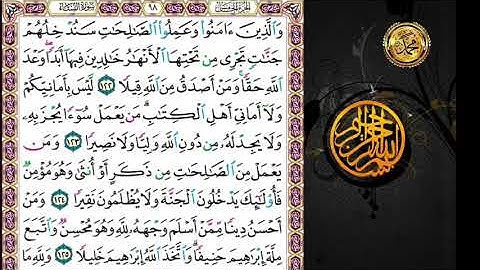 الجزء الخامس ٩٨ سورة النساء
وَالَّذِينَ ءَامَنُوا۟ وَعَمِلُوا۟ الصَّـٰلِحَـٰتِ سَنُدْخِلُهُمْ
جَنَّـٰتٍ تَجْرِى مِن تَحْتِهَا الْأَنْهَـٰرُ خَـٰلِدِينَ فِيهَآ أَبَدًا ۖ وَعْدَ
اللَّهِ حَقًّا ۚ وَمَنْ أَصْدَقُ مِنَ اللَّهِ قِيلًا ١٢٢ لَّيْسَ بِأَمَانِيِّكُمْ
وَلَآ أَمَانِىِّ أَهْلِ الْكِتَـٰبِ ۗ مَن يَعْمَلْ سُوٓءًا يُجْزَ بِهِۦ
وَلَا يَجِدْ لَهُۥ مِن دُونِ اللَّهِ وَلِيًّا وَلَا نَصِيرًا ١٢٣ وَمَن
يَعْمَلْ مِنَ الصَّـٰلِحَـٰتِ مِن ذَكَرٍ أَوْ أُنثَىٰ وَهُوَ مُؤْمِنٌ
فَأُو۟لَـٰٓئِكَ يَدْخُلُونَ الْجَنَّةَ وَلَا يُظْلَمُونَ نَقِيرًا ١٢٤ وَمَنْ
أَحْسَنُ دِينًا مِّمَّنْ أَسْلَمَ وَجْهَهُۥ لِلَّهِ وَهُوَ مُحْسِنٌ وَاتَّبَعَ
مِلَّةَ إِبْرَٰهِيمَ حَنِيفًا ۗ وَاتَّخَذَ اللَّهُ إِبْرَٰهِيمَ خَلِيلًا ١٢٥ وَلِلَّهِ مَا
محمد
بسم الله الرحمن الرحيم